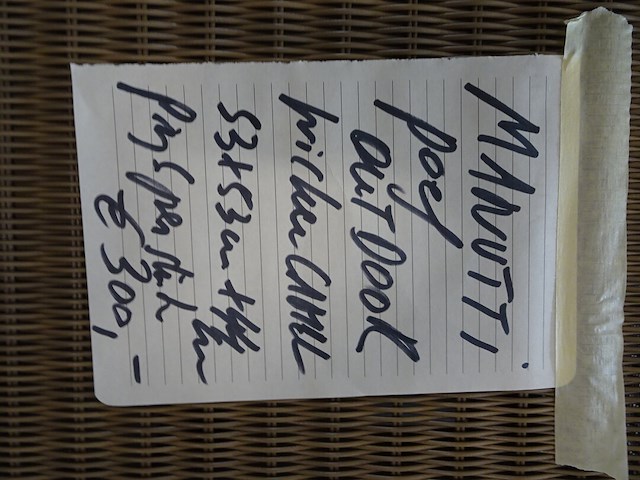 MANUTTI
poef
OUTDOOR
wicker CAMEL
53x53cm x 44
cm
Prijs per stuk
€ 300,-